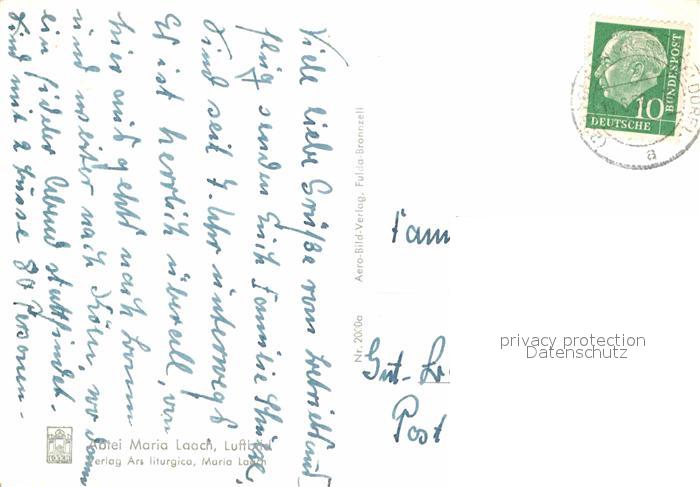 Viele liebe Grüße vom Betriebsaus-
flug senden Euch Familie
Sind seit 7. Uhr unterwegs
Es ist herrlich überall, von
hier aus geht nach Bonn
und weiter nach Köln, wo dann
ein fideler Abend stattfindet.
Sind mit 2 Busse 80 Personen.-
Abtei Maria Laach, Luftbild
Verlag Ars liturgica, Maria Laach
Nr. 2000a
Aero-Bild-Verlag, Fulda-Bronnzell
10
DEUTSCHE
BUNDESPOST
a
Fam
Gut-
Post
privacy protection
Datenschutz